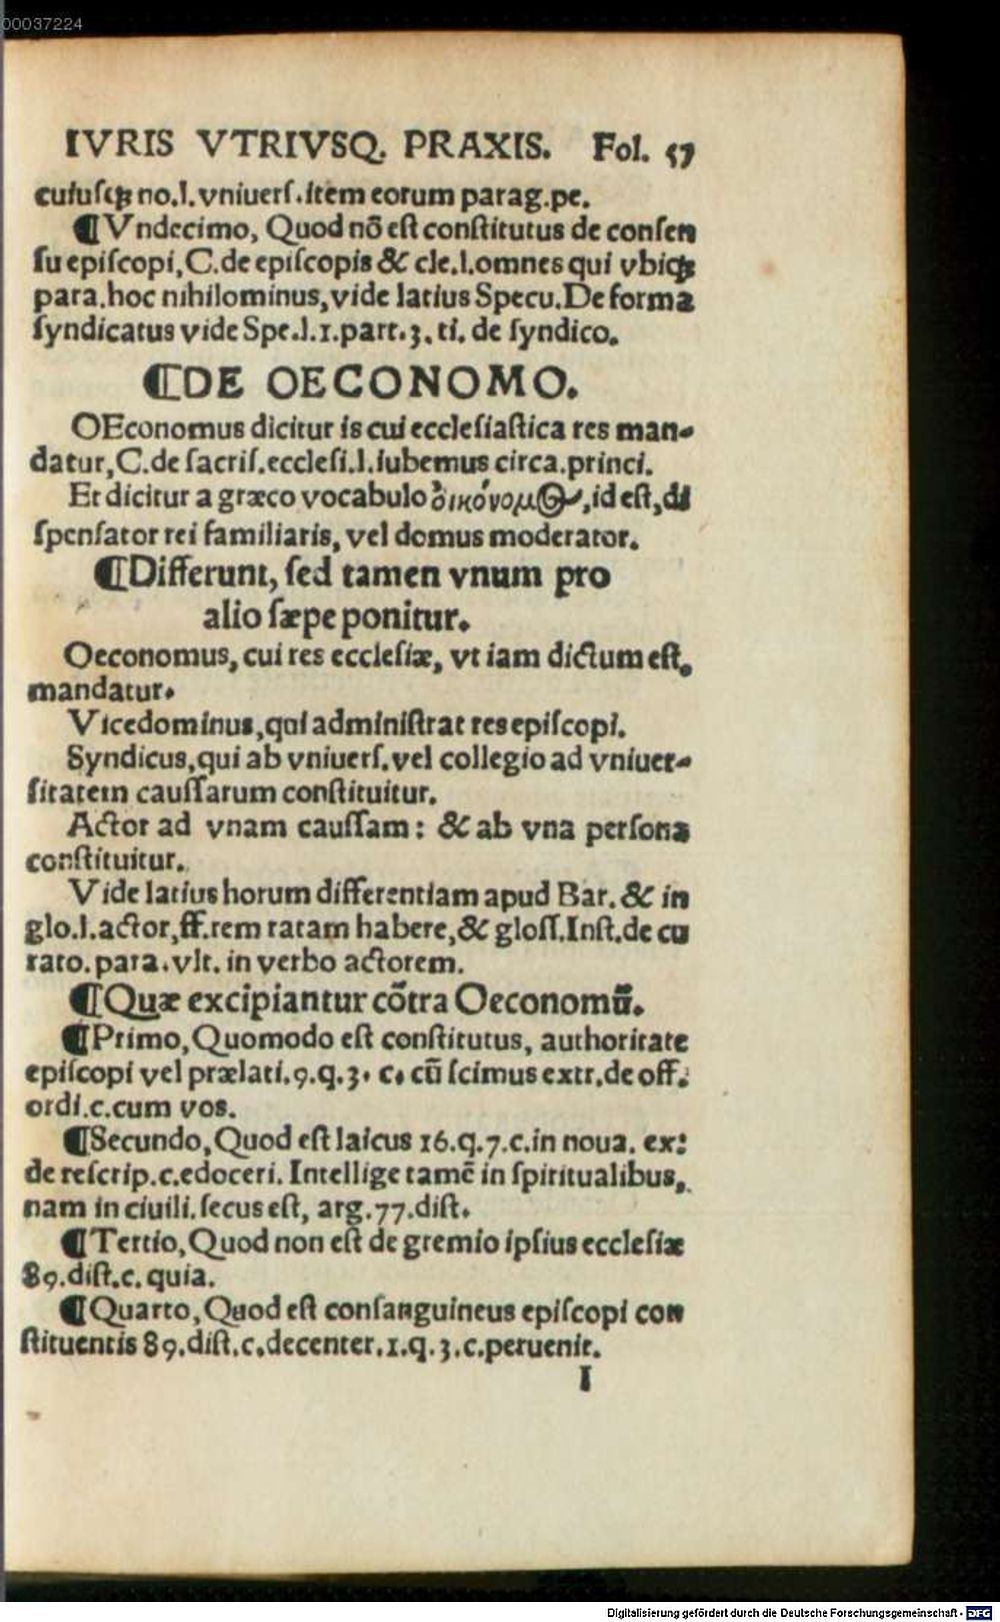 00037224
IVRIS VTRIVSQ. PRAXIS. Fol. 57
cuiuſqꝫ no.l.vniuerſ.item eorum parag.pe.
¶Vndecimo, Quod nō eſt conſtitutus de conſen
ſu epiſcopi, C.de epiſcopis & cle.l.omnes qui vbiqꝫ
para.hoc nihilominus, vide latius Specu. De forma
ſyndicatus vide Spe.l.1.part.3.ti. de ſyndico.
¶DE OECONOMO.
OEconomus dicitur is cui eccleſiaſtica res man-
datur, C.de ſacriſ.eccleſi.l.iubemus circa.princi.
Et dicitur a græco vocabulo ὀικόνομος, id eſt, di
ſpenſator rei familiaris, vel domus moderator.
¶Differunt, ſed tamen vnum pro
alio ſæpe ponitur.
Oeconomus, cui res eccleſiæ, vt iam dictum eſt,
mandatur.
Vicedominus, qui adminiſtrat res epiſcopi.
Syndicus, qui ab vniuerſ. vel collegio ad vniuer-
ſitatem cauſſarum conſtituitur.
Actor ad vnam cauſſam: & ab vna perſona
conſtituitur.
Vide latius horum differentiam apud Bar. & in
glo.l.actor, ff.rem ratam habere, & gloſſ.Inſt.de cu
rato.para.vlt. in verbo actorem.
¶Quæ excipiantur cōtra Oeconomū.
¶Primo, Quomodo eſt conſtitutus, authoritate
epiſcopi vel prælati.9.q.3. c. cū ſcimus extr.de off.
ordi.c.cum vos.
¶Secundo, Quod eſt laicus 16.q.7.c.in noua. ex:
de reſcrip.c.edoceri. Intellige tamē in ſpiritualibus,
nam in ciuili.ſecus eſt, arg.77.diſt.
¶Tertio, Quod non eſt de gremio ipſius eccleſiæ
89.diſt.c. quia.
¶Quarto, Quod eſt conſanguineus epiſcopi con
ſtituentis 89.diſt.c.decenter.1.q.3.c.peruenit.
I
Digitalisierung gefördert durch die Deutsche Forschungsgemeinschaft - DFG